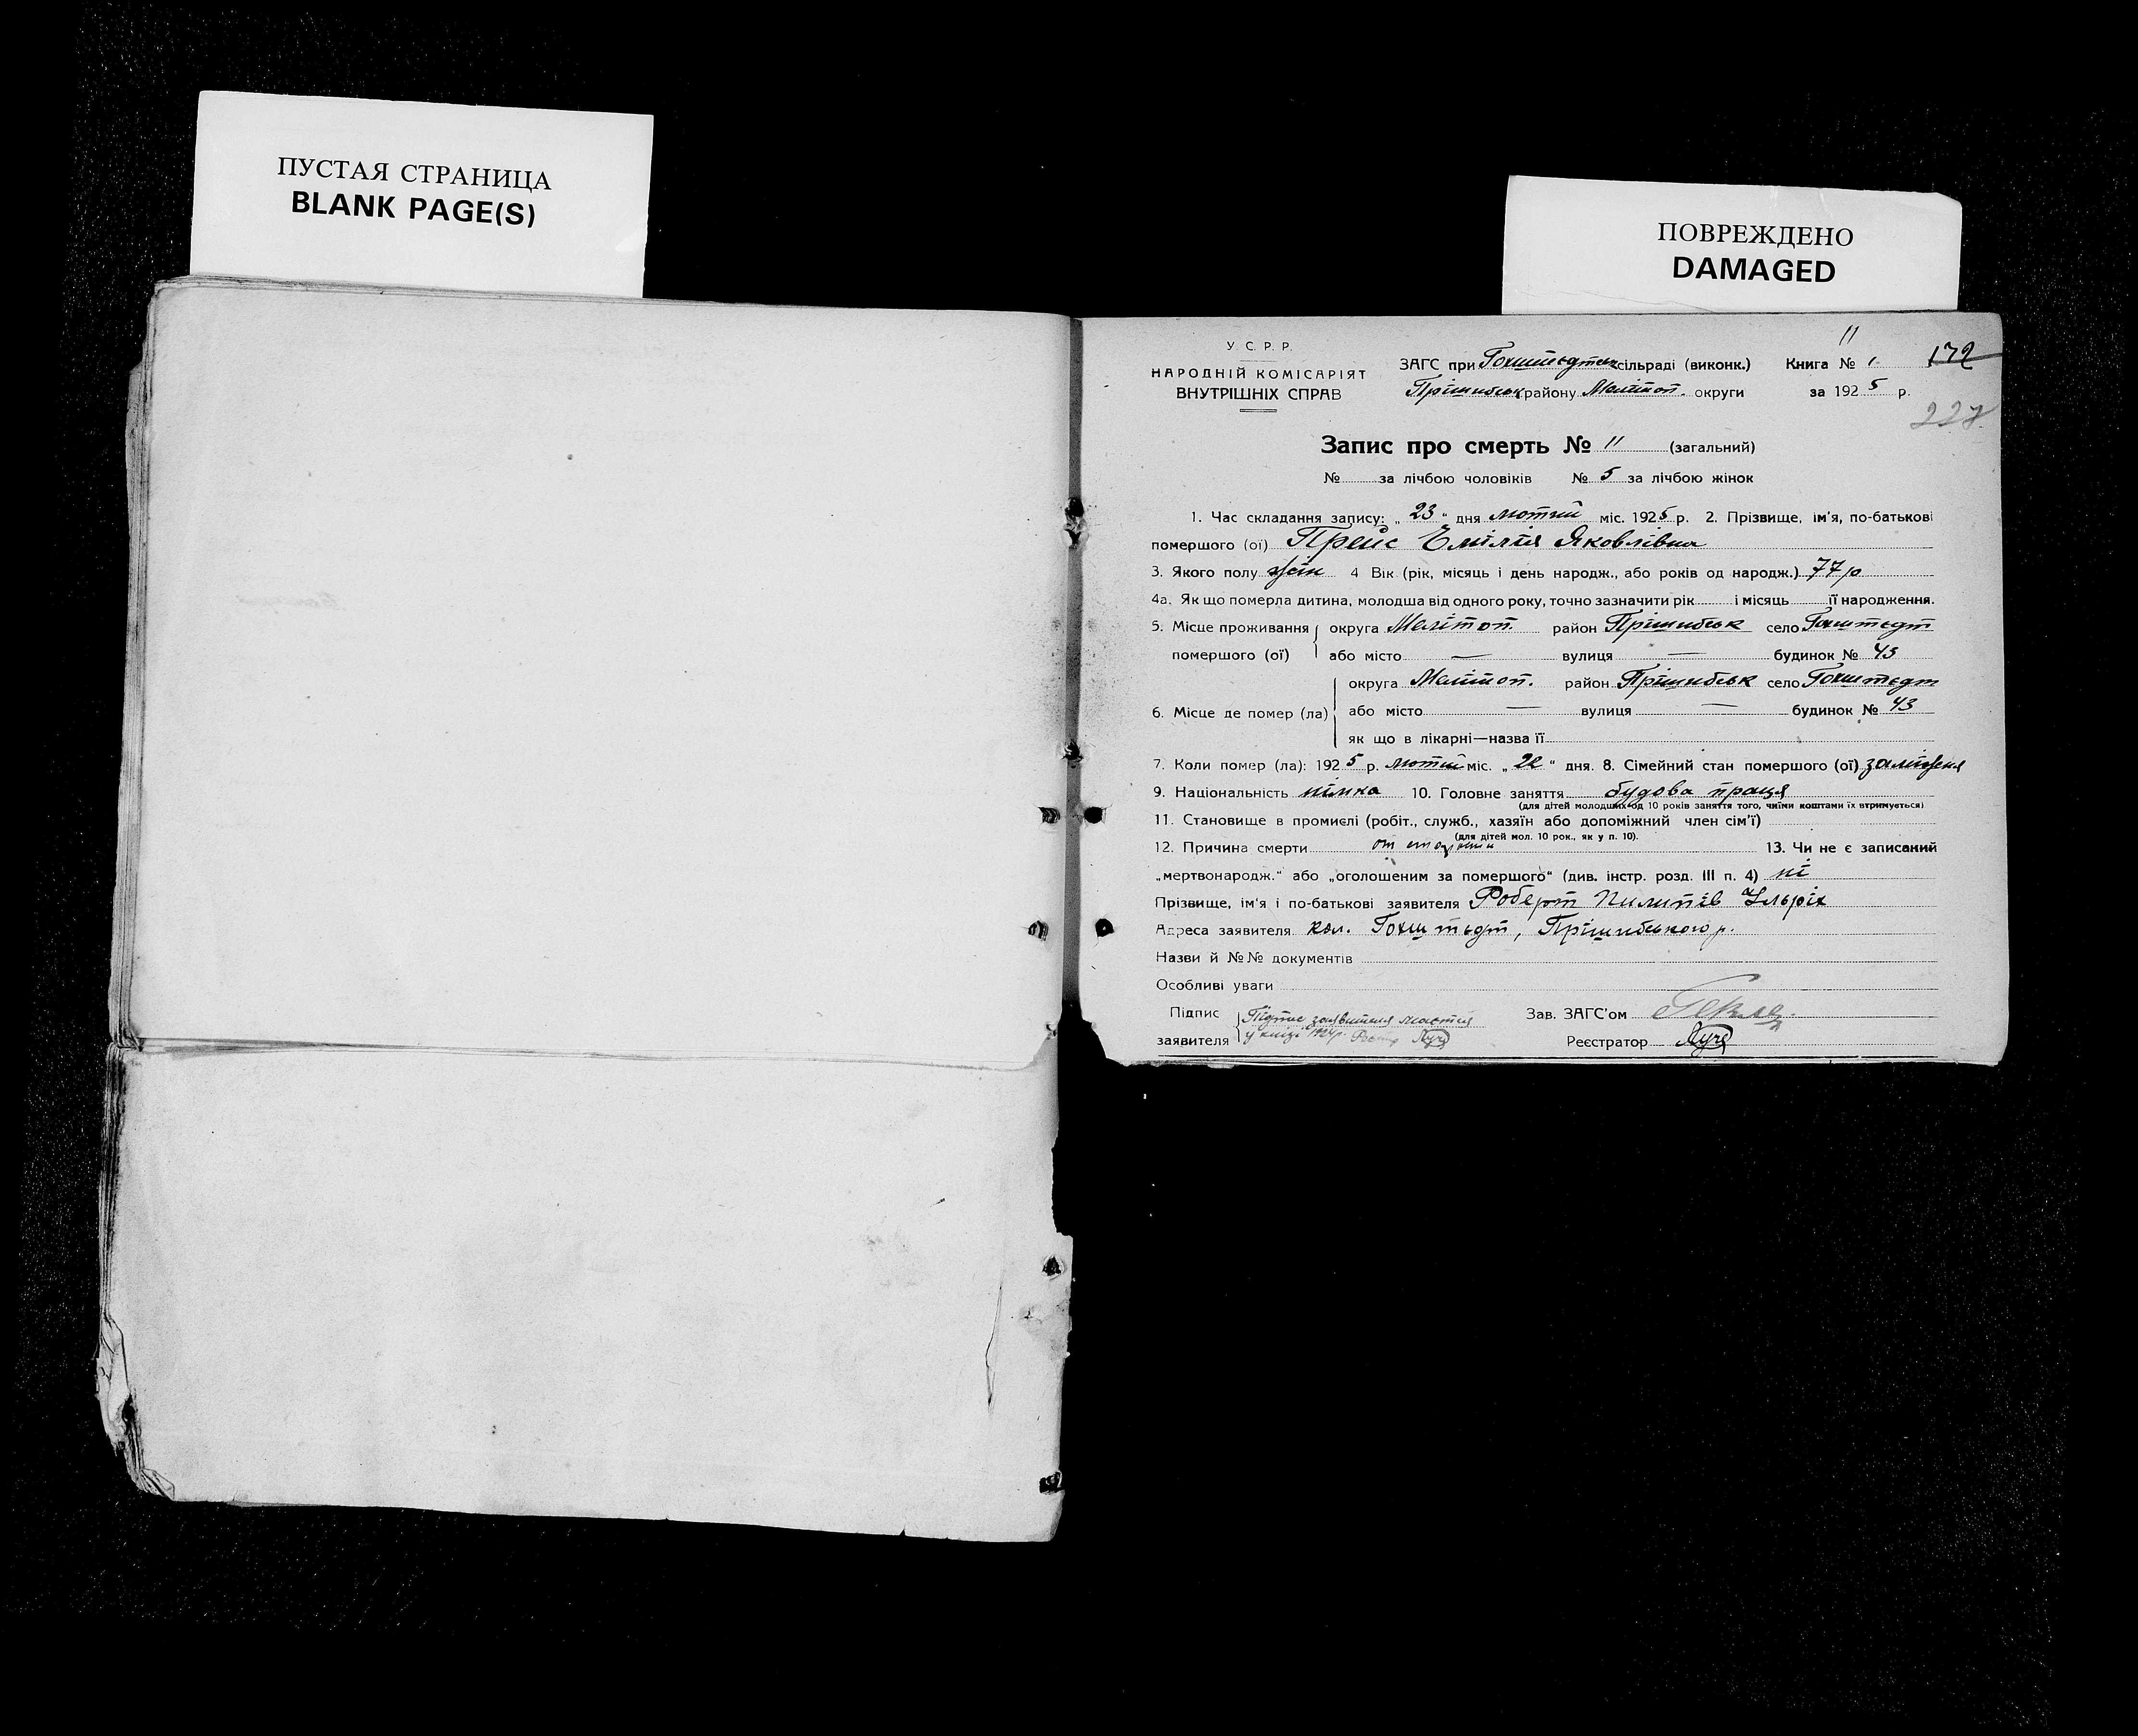 ПУСТАЯ СТРАНИЦА
BLANK PAGE(S)
ПОВРЕЖДЕНО
DAMAGED
11
У. С. Р. Р.
НАРОДНІЙ КОМІСАРІЯТ
ВНУТРІШНІХ СПРАВ
ЗАГС при Гохштедтськ сільраді (виконк.) Книга № 1 172
Прішибськ району Мелітоп. округи за 1925 р.
227
Запис про смерть № 11 (загальний)
№ за лічбою чоловіків № 5 за лічбою жінок
1. Час складання запису: „ 23 “ дня лютий міс. 1925 р. 2. Прізвище, ім’я, по-батькові
помершого (ої) Прейс Емілія Яковлівна
3. Якого полу жін 4 Вік (рік, місяць і день народж., або років од народж.) 77 р
4а. Як що померла дитина, молодша від одного року, точно зазначити рік і місяць її народження.
5. Місце проживання округа Мелітоп. район Прішибськ село Гохштедт
помершого (ої) або місто — вулиця — будинок № 43
округа Меліtоп. район Прішибськ село Гохштедт
6. Місце де помер (ла) або місто — вулиця — будинок № 43
як що в лікарні—назва її
7. Коли помер (ла): 1925 р. лютий міс. „ 22 “ дня. 8. Сімейний стан помершого (ої) заміжня
9. Національність німка 10. Головне заняття будова праця
(для дітей молодших од 10 років заняття того, чиїми коштами їх втримується)
11. Становище в промислі (робіт., служб., хазяїн або допоміжний член сім’ї)
(для дітей мол. 10 рок., як у п. 10).
12. Причина смерти от 13. Чи не є записаний
„мертвонародж.“ або „оголошеним за помершого“ (див. інстр. розд. III п. 4) ні
Прізвище, ім’я і по-батькові заявителя Роберт Пилипів Ульріх
Адреса заявителя кол. Гохштедт, Прішибського р.
Назви й №№ документів
Особливі уваги
Підпис Підпис заявителя мається Зав. ЗАГС’ом
заявителя у книзі 1924 р. Реєстратор